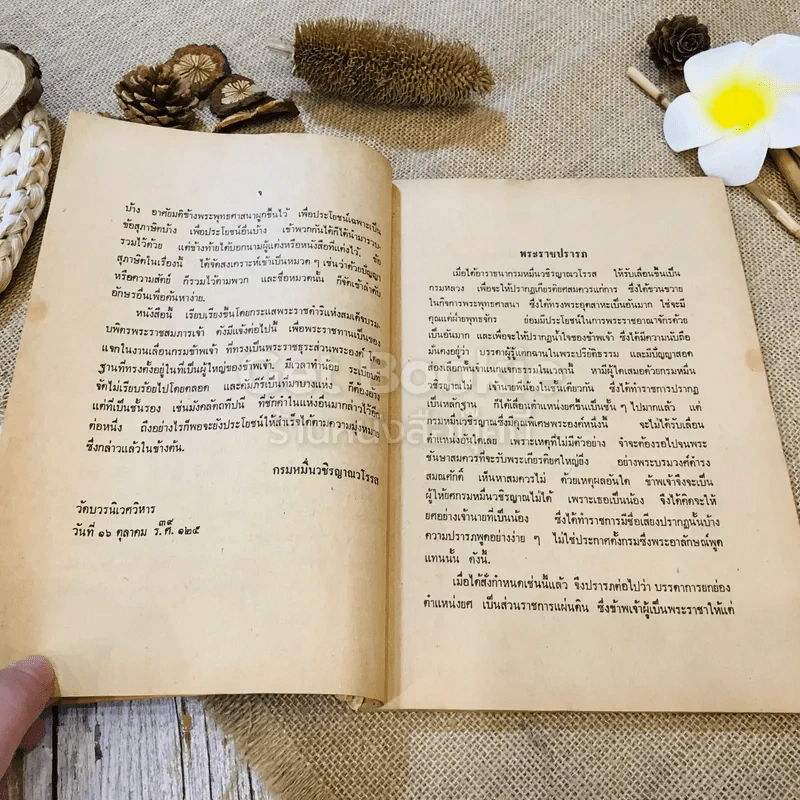 ๆ
บ้าง อาศัยมติข้างพระพุทธศาสนาผูกขึ้นไว้ เพื่อประโยชน์เฉพาะเป็น
ข้อสุภาษิตบ้าง เพื่อประโยชน์อื่นบ้าง เข้าพวกกันได้ก็ได้นำมารวบ
รวมไว้ด้วย แต่ข้างท้ายได้บอกนามผู้แต่งหรือหนังสือที่แต่งไว้ ข้อ
สุภาษิตในเรื่องนี้ ได้จัดสงเคราะห์เข้าเป็นหมวด ๆ เช่นว่าด้วยปัญญา
หรือความสัตย์ ก็รวมไว้ตามพวก และชื่อหมวดนั้น ก็จัดเข้าลำดับ
อักษรอื่นเพื่อค้นหาง่าย
หนังสือนี้ เรียบเรียงขึ้นโดยกระแสพระราชดำริแห่งสมเด็จบรม
บพิตรพระราชสมภารเจ้า ดังมีแจ้งต่อไปนี้ เพื่อพระราชทานเป็นของ
แจกในงานเลื่อนกรมข้าพเจ้า ที่ทรงเป็นพระราชธุระส่วนพระองค์ โดย
ฐานที่ทรงตั้งอยู่ในที่เป็นผู้ใหญ่ของข้าพเจ้า มีเวลาทำน้อย ระเบียบที่
จัดไม่เรียบร้อยไปโดยตลอด และคัมภีร์เป็นที่มาบางแห่ง ก็ต้องอ้าง
แต่ที่เป็นชั้นรอง เช่นมังคลัตถทีปนี ที่ชักคำในแห่งอื่นมากล่าวไว้อีก
ต่อหนึ่ง ถึงอย่างไรก็พอจะยังประโยชน์ให้สำเร็จได้ตามความมุ่งหมาย
ซึ่งกล่าวแล้วในข้างต้น.
กรมหมื่นวชิรญาณวโรรส
วัดบวรนิเวศวิหาร
วันที่ ๑๖ ตุลาคม ร.ศ๓๙. ๑๒๕
พระราชปรารภ
เมื่อได้อาราธนากรมหมื่นวชิรญาณวโรรส ให้รับเลื่อนขึ้นเป็น
กรมหลวง เพื่อจะให้ปรากฏเกียรติยศสมควรแก่การ ซึ่งได้ขวนขวาย
ในกิจการพระพุทธศาสนา ซึ่งได้ทรงพระอุตสาหะเป็นอันมาก ใช่จะมี
คุณแต่ฝ่ายพุทธจักร ย่อมมีประโยชน์ในการพระราชอาณาจักรด้วย
เป็นอันมาก และเพื่อจะให้ปรากฏน้ำใจของข้าพเจ้า ซึ่งได้มีความนับถือ
มั่นคงอยู่ว่า บรรดาผู้รู้แตกฉานในพระปริยัติธรรม และมีปัญญาสอด
ส่องเลือกฟั้นเจ้าแนกแจกธรรมในเวลานี้ หามีผู้ใดเสมอด้วยกรมหมื่น
วชิรญาณไม่ เจ้านายพี่น้องในชั้นเดียวกัน ซึ่งได้ทำราชการปรากฏ
เป็นหลักฐาน ก็ได้เลื่อนตำแหน่งยศขึ้นเป็นชั้น ๆ ไปมากแล้ว แต่
กรมหมื่นวชิรญาณซึ่งมีคุณพิเศษพระองค์หนึ่งนี้ จะไม่ได้รับเลื่อน
ตำแหน่งอันใดเลย เพราะเหตุที่ไม่มีตัวอย่าง จำจะต้องรอไปจนพระ
ชันษาสมควรที่จะรับพระเกียรติยศใหญ่ยิ่ง อย่างพระบรมวงศ์ดำรง
สมณศักดิ์ เห็นหาสมควรไม่ ด้วยเหตุผลอันใด ข้าพเจ้าจึงจะเป็น
ผู้ให้ยศกรมหมื่นวชิรญาณไม่ได้ เพราะเธอเป็นน้อง จึงได้คิดจะให้
ยศอย่างเจ้านายที่เป็นน้อง ซึ่งได้ทำราชการมีชื่อเสียงปรากฏนั้นบ้าง
ความปรารภพูดอย่างง่าย ๆ ไม่ใช่ประกาศตั้งกรมซึ่งพระอาลักษณ์พูด
แทนนั้น ดังนี้.
เมื่อได้สั่งกำหนดเช่นนี้แล้ว จึงปรารภต่อไปว่า บรรดาการยกย่อง
ตำแหน่งยศ เป็นส่วนราชการแผ่นดิน ซึ่งข้าพเจ้าผู้เป็นพระราชาให้แต่